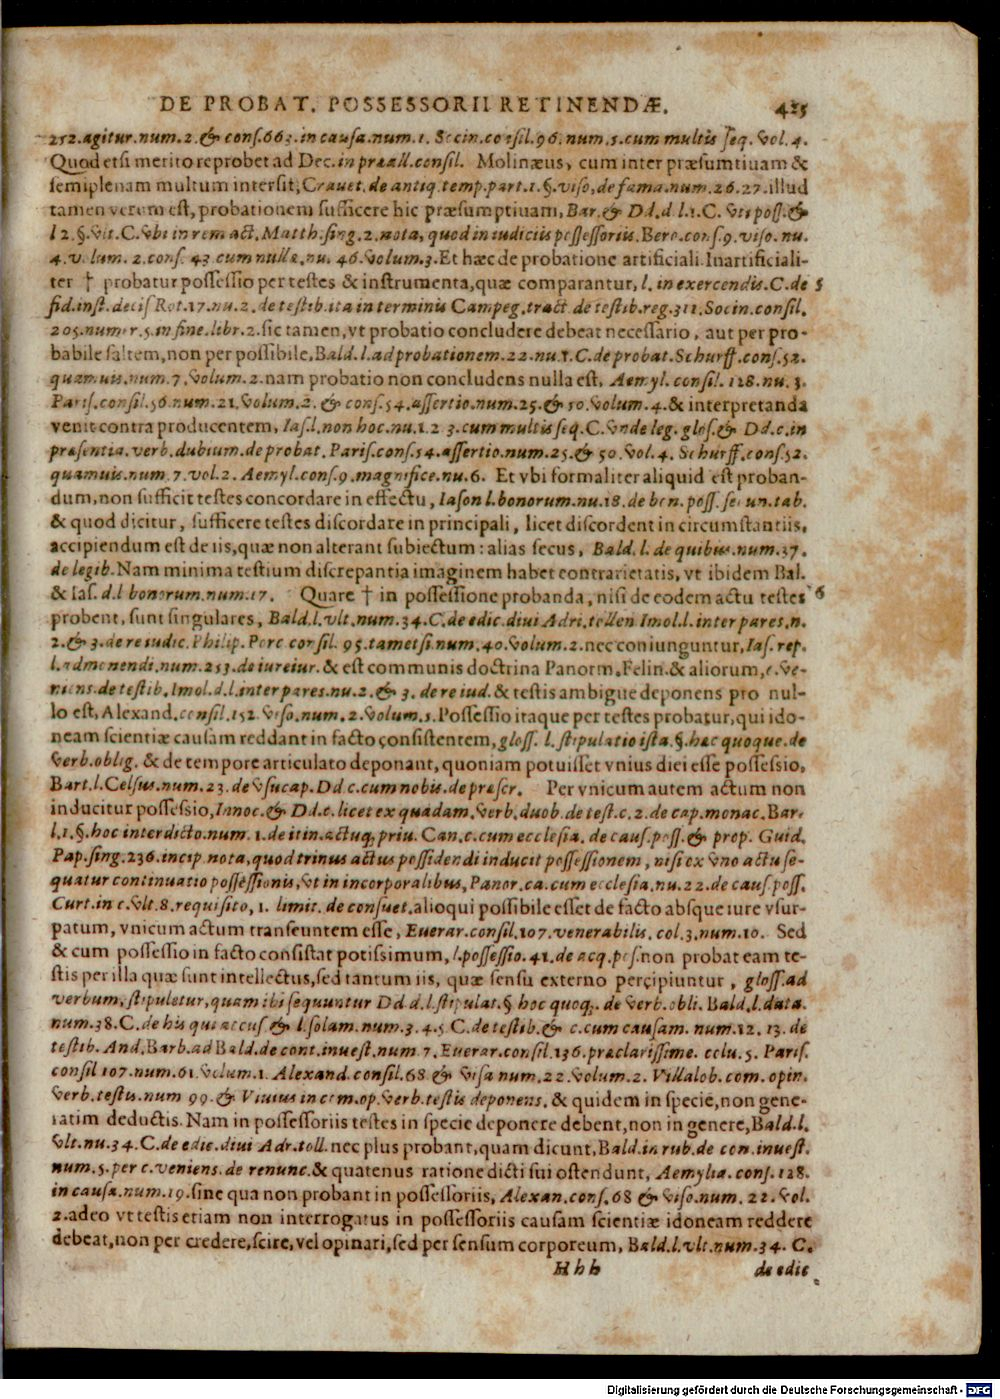 DE PROBAT. POSSESSORII RETINENDÆ. 425
252.agitur.num.2.& conſ.663.in cauſa.num.1. Socin.conſil.96.num.5.cum multis ſeq.Vol.4.
Quod etſi merito reprobet ad Dec.in præall.conſil. Molinæus, cum inter præſumtiuam &
ſemiplenam multum interſit, Crauet.de antiq.temp.part.1.§.viſo,de fama.num.26.27.illud
tamen verum eſt, probationem ſufficere hic præſumptiuam, Bar.& Dd.d.l.1.C. Vti poſſ.&
l.2.§.Vlt.C.Vbi in rem act. Matth.ſing.2.nota, quod in iudiciis poſſeſſoriis.Bero.conſ.9.viſo.nu.
4.volum.2.conſ.43.cum nulla.nu.46.Volum.3.Et hæc de probatione artificiali.Inartificiali-
ter † probatur poſſeſſio per teſtes & inſtrumenta,quæ comparantur, l. in exercendis.C.de 5
fid.inſt.deciſ Rot.17.nu.2.de teſtib.ita in terminis Campeg.tract.de teſtib.reg.311.Socin.conſil.
205.numer.5.in fine.libr.2.ſic tamen,vt probatio concludere debeat neceſſario, aut per pro-
babile ſaltem,non per poſſibile,Bald.l.ad probationem.22.nu.1.C.de probat.Schurff.conſ.52.
quamuis.num.7.Volum.2.nam probatio non concludens nulla eſt, Aemyl.conſil.128.nu.3.
Pariſ.conſil.56.num.21.Volum.2. & conſ.54.aſſertio.num.25.& 50.Volum.4.& interpretanda
venit contra producentem, Iaſ.l.non hoc.nu.1.2 3.cum multis ſeq.C.Vnde leg. gloſ.& Dd.c.in
præſentia.verb.dubium.de probat.Pariſ.conſ.54.aſſertio.num.25.& 50.Vol.4. Schurff.conſ.52.
quamuis.num.7.vol.2. Aemyl.conſ.9.magnifice.nu.6. Et vbi formaliter aliquid eſt proban-
dum,non ſufficit teſtes concordare in effectu, Iaſon l.bonorum.nu.18.de bon.poſſ.ſecun.tab.
& quod dicitur, ſufficere teſtes diſcordare in principali, licet diſcordent in circumſtantiis,
accipiendum eſt de iis,quæ non alterant ſubiectum: alias ſecus, Bald.l.de quibus.num.37.
de legib.Nam minima teſtium diſcrepantia imaginem habet contrarietatis, vt ibidem Bal.
& Iaſ.d.l bonorum.num.17. Quare † in poſſeſſione probanda, niſi de eodem actu teſtes 6
probent, ſunt ſingulares, Bald.l.vlt.num.34.C.de edic.diui Adri.tollen Imol.l.inter pares.n.
2.& 3.de re iudic.Philip.Porc conſil.95.tametſi num.40.Volum.2.nec coniunguntur,Iaſ.rep.
l.admonendi.num.253.de iureiur.& eſt communis doctrina Panorm.Felin.& aliorum,c.Ve-
niens.de teſtib.Imol.d.l.inter pares.nu.2.& 3. de re iud.& teſtis ambigue deponens pro nul-
lo eſt, Alexand.conſil.152.Viſo.num.2.Volum.5.Poſſeſſio itaque per teſtes probatur,qui ido-
neam ſcientiæ cauſam reddant in facto conſiſtentem,gloſſ. l.ſtipulatio iſta.§.hac quoque.de
Verb.oblig. & de tempore articulato deponant, quoniam potuiſſet vnius diei eſſe poſſeſſio,
Bart.l.Celſus.num.23.de Vſucap.Dd.c.cum nobis.de præſcr. Per vnicum autem actum non
inducitur poſſeſſio,Innoc.& Dd.c.licet ex quadam.Verb.duob.de teſt.c.2.de cap.monac.Bar.
l.1.§.hoc interdicto.num.1.de itin.actuq;priu. Can.c.cum eccleſia. de cauſ.poſſ.& prop. Guid.
Pap.ſing.236.incip.nota,quod trinus actus poſſidendi inducit poſſeſſionem, niſi ex Vno actu ſe-
quatur continuatio poſſeſſionis,Vt in incorporalibus,Panor.ca.cum eccleſia.nu.22.de cauſ.poſſ.
Curt.in c.Vlt.8.requiſito,1. limit.de conſuet.alioqui poſſibile eſſet de facto abſque iure vſur-
patum, vnicum actum tranſeuntem eſſe, Euerar.conſil.107.venerabilis.col.3.num.10. Sed
& cum poſſeſſio in facto conſiſtat potiſſimum, l.poſſeſſio.41.de acq.poſ.non probat eam te-
ſtis per illa quæ ſunt intellectus,ſed tantum iis, quæ ſenſu externo percipiuntur, gloſſ.ad
verbum, ſtipuletur,quam ibi ſequuntur Dd d.l.ſtipulat.§ hoc quoq;.de Verb.obli. Bald.l.data.
num.38.C.de his qui accuſ & l.ſolam.num.3.4.5 C.de teſtib.& c.cum cauſam.num.12. 13. de
teſtib. And.Barb.ad Bald.de cont.inueſt.num 7.Euerar.conſil.136.præclariſſime. colu.5. Pariſ.
conſil 107.num.61.Volum.1. Alexand.conſil.68 & Viſa num.22.Volum.2. Villalob.com.opin.
Verb.teſtis.num 99.& Viuius in com.op.Verb.teſtis deponens.& quidem in ſpecie,non gene-
ratim deductis.Nam in poſſeſſoriis teſtes in ſpecie deponere debent,non in genere,Bald.l.
Vlt.nu.34.C.de edic.diui Adr.toll.nec plus probant,quam dicunt,Bald.in rub.de con.inueſt.
num.5.per c.veniens.de renunc.& quatenus ratione dicti ſui oſtendunt, Aemylia.conſ.128.
in cauſa.num.19.ſine qua non probant in poſſeſſoriis, Alexan.conſ.68 & Viſo.num.22.Vol.
2.adeo vt teſtis etiam non interrogatus in poſſeſſoriis cauſam ſcientiæ idoneam reddere
debeat,non per credere,ſcire,vel opinari,ſed per ſenſum corporeum, Bald.l.vlt.num.34. C.
Hhh de edic
Digitalisierung gefördert durch die Deutsche Forschungsgemeinschaft - DFG